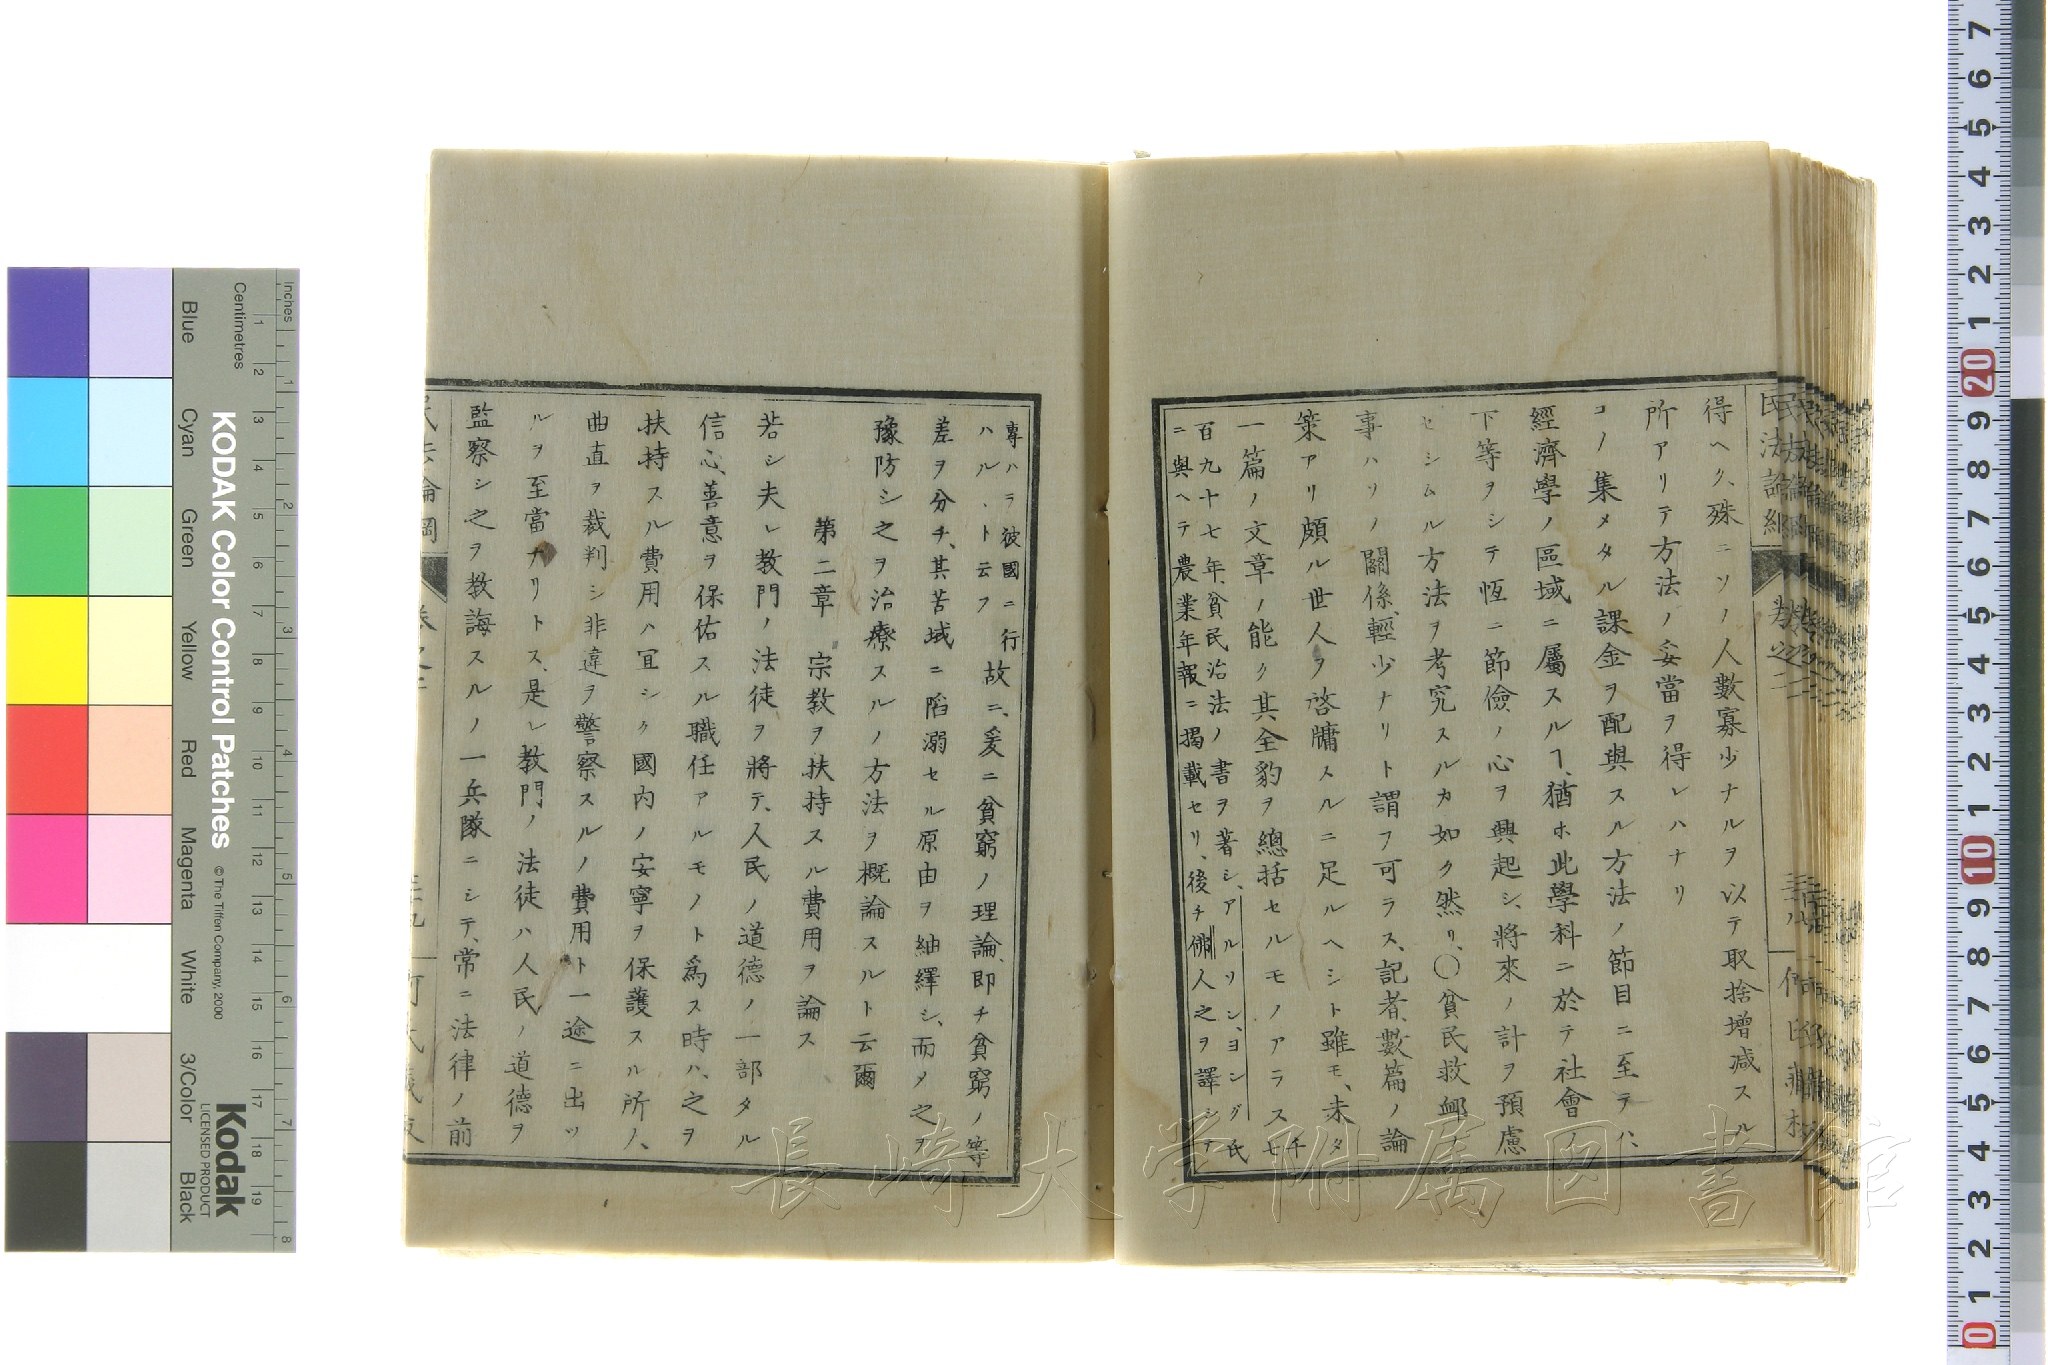 得ヘク、殊ニソノ人數寡少ナルヲ以テ取捨増減スル
所アリテ方法ノ妥當ヲ得レハナリ
コノ集メタル課金ヲ配與スル方法ノ節目ニ至テハ、
經濟學ノ區域ニ屬スルヿ、猶ホ此學科ニ於テ社會ノ
下等ヲシテ恆ニ節儉ノ心ヲ興起シ、將來ノ計ヲ預慮
セシムル方法ヲ考究スルカ如ク然リ、〇貧民救衈ノ
事ハソノ關係、輕少ナリト謂フ可ラス、記者、數篇ノ論
策アリ頗ル世人ヲ啓牖スルニ足ルヘシト雖モ、未タ
一篇ノ文章ノ能ク其全豹ヲ總括セルモノアラス千七
百九十七年、貧民治法ノ書ヲ著シ、アルリン、ヨング氏
ニ與ヘテ農業年報ニ掲載セリ、後チ佛人之ヲ譯シテ
專ハラ彼國ニ行
ハル、ト云フ
故ニ、爰ニ貧窮ノ理論、即チ貧窮ノ等
差ヲ分チ、其苦域ニ陷溺セル原由ヲ紬繹シ、而メ之ヲ
豫防シ之ヲ治療スルノ方法ヲ概論スルト云爾
第二章 宗教ヲ扶持スル費用ヲ論ス
若シ夫レ教門ノ法徒ヲ將テ、人民ノ道德ノ一部タル
信心、善意ヲ保佑スル職任アルモノト爲ス時ハ、之ヲ
扶持スル費用ハ冝シク國内ノ安寧ヲ保護スル所ノ、
曲直ヲ裁判シ非違ヲ警察スルノ費用ト一途ニ出ツ
ルヲ至當ナリトス、是レ教門ノ法徒ハ人民ノ道德ヲ
監察シ之ヲ教誨スルノ一兵隊ニシテ、常ニ法律ノ前
長崎大学附属図書館
KODAK Color Control Patches
© The Tiffen Company, 2000
Kodak
LICENSED PRODUCT
Inches
Centimetres
Blue
Cyan
Green
Yellow
Red
Magenta
White
3/Color
Black